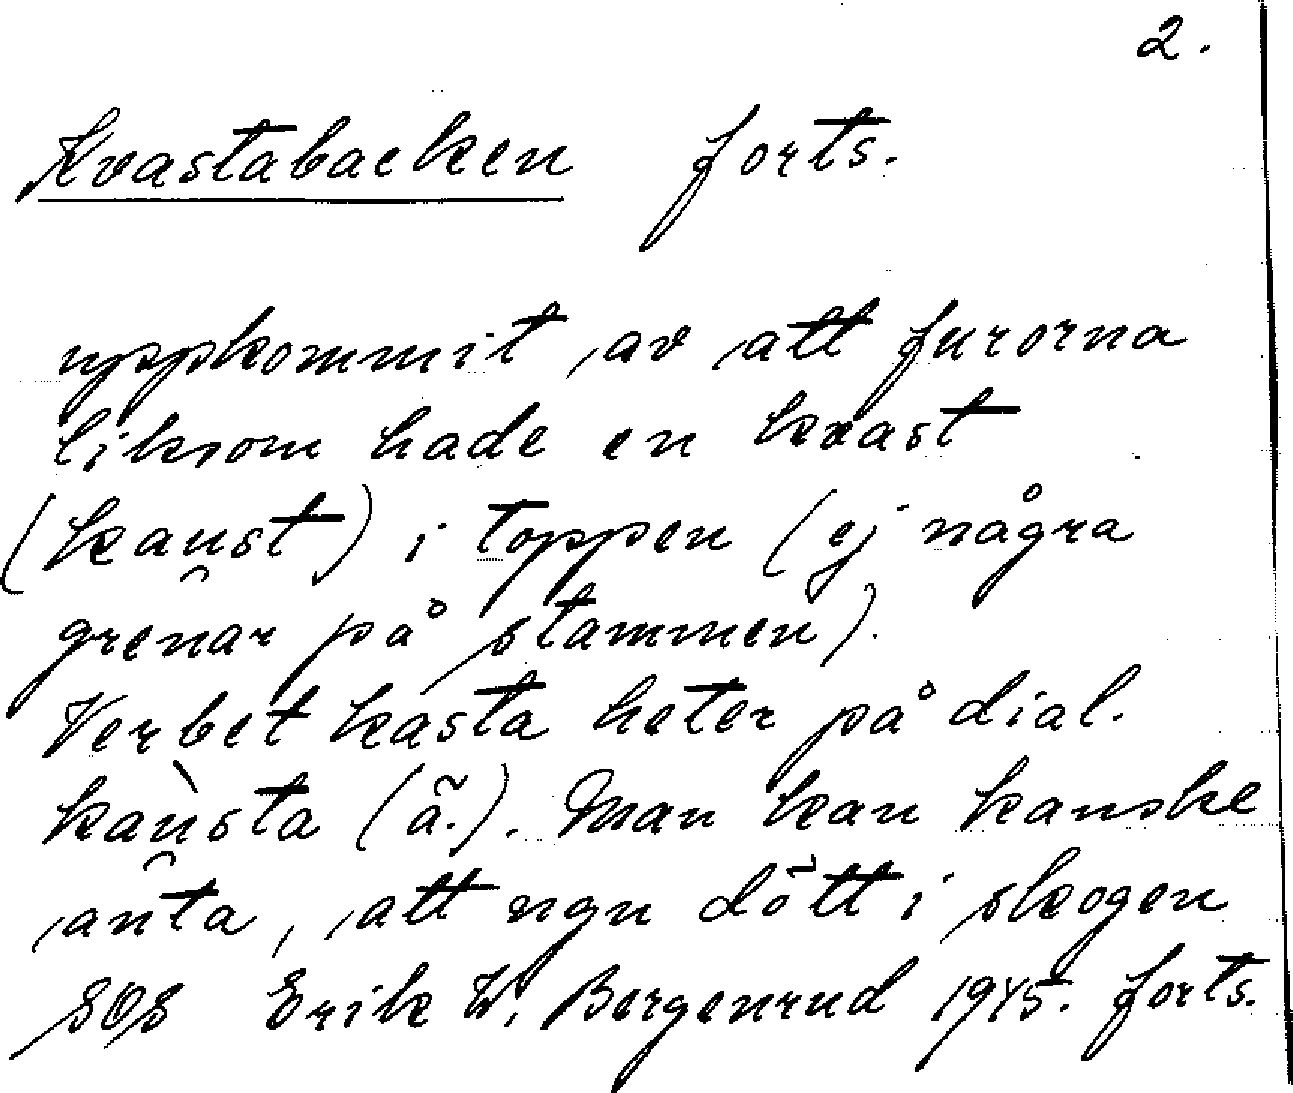 2.
Kvastabacken forts.
uppkommit av att furorna
liksom hade en kvast
(kau̯st) i toppen (ej några
grenar på stammen).
Verbet kasta heter på dial.
kàu̯sta (ã.). Man kan kanske
anta, att ngn dött i skogen
SOS Erik W. Bergenrud 1945. forts.